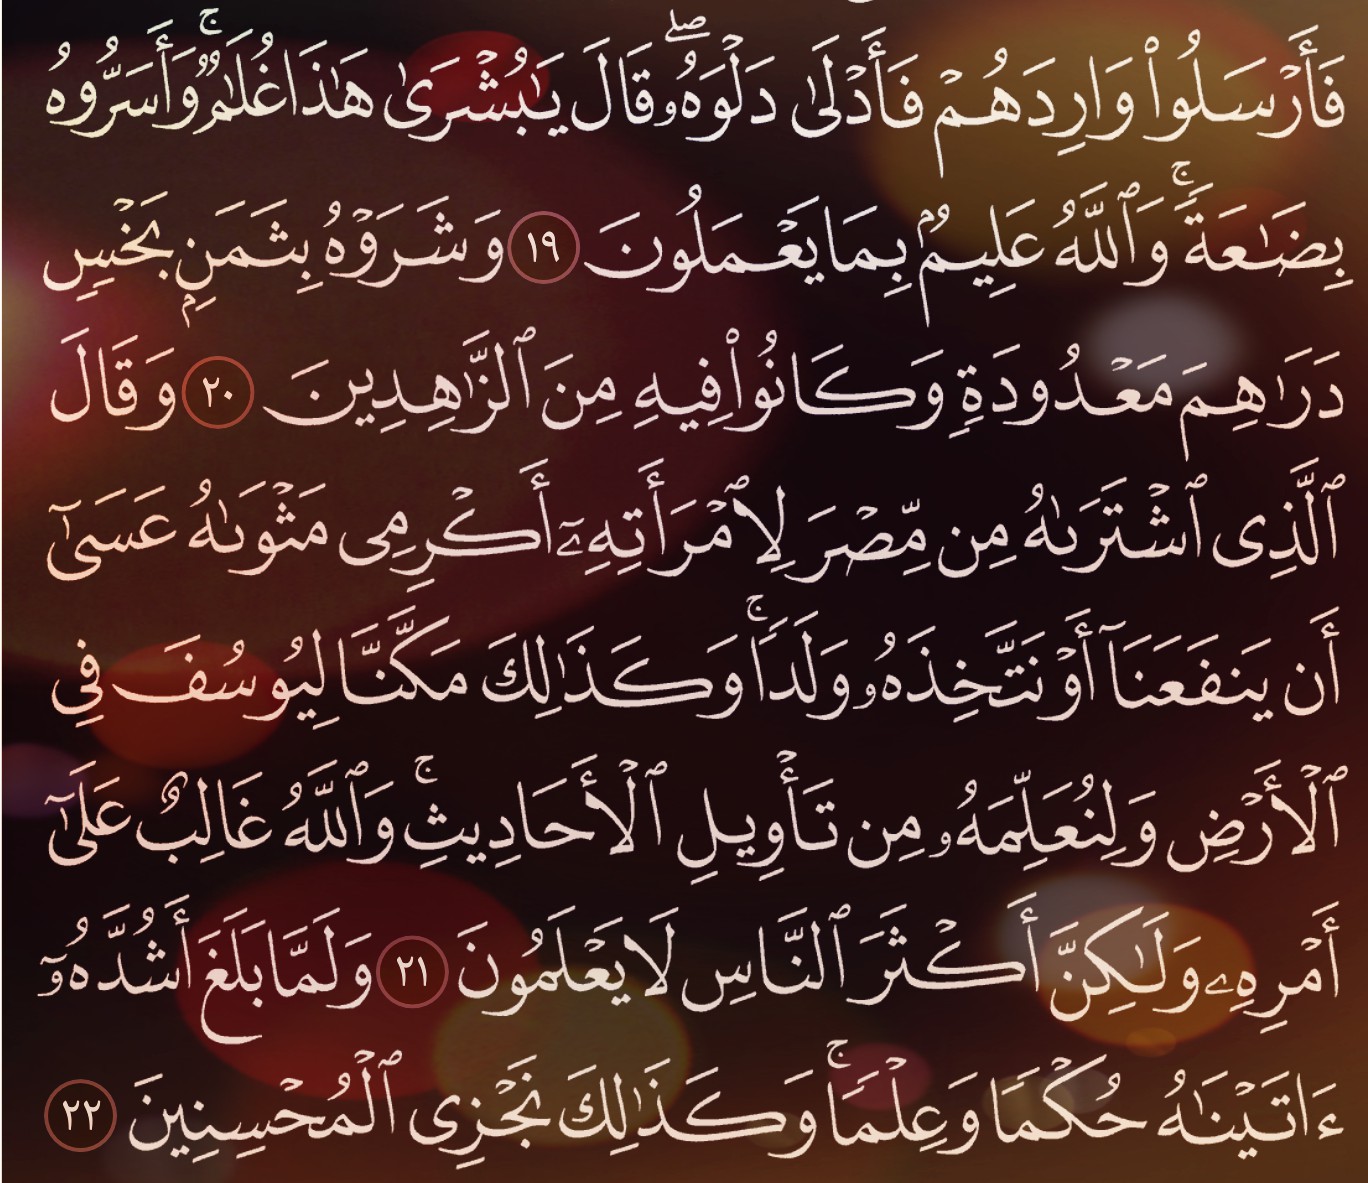 فَأَرْسَلُوا۟ وَارِدَهُمْ فَأَدْلَىٰ دَلْوَهُۥ ۖ قَالَ يَـٰبُشْرَىٰ هَـٰذَا غُلَـٰمٌ ۚ وَأَسَرُّوهُ
بِضَـٰعَةً ۚ وَٱللَّهُ عَلِيمٌۢ بِمَا يَعْمَلُونَ ١٩ وَشَرَوْهُ بِثَمَنٍۭ بَخْسٍ
دَرَٰهِمَ مَعْدُودَةٍ وَكَانُوا۟ فِيهِ مِنَ ٱلزَّٰهِدِينَ ٢٠ وَقَالَ
ٱلَّذِى ٱشْتَرَىٰهُ مِن مِّصْرَ لِٱمْرَأَتِهِۦٓ أَكْرِمِى مَثْوَىٰهُ عَسَىٰٓ
أَن يَنفَعَنَآ أَوْ نَتَّخِذَهُۥ وَلَدًا ۚ وَكَذَٰلِكَ مَكَّنَّا لِيُوسُفَ فِى
ٱلْأَرْضِ وَلِنُعَلِّمَهُۥ مِن تَأْوِيلِ ٱلْأَحَادِيثِ ۚ وَٱللَّهُ غَالِبٌ عَلَىٰٓ
أَمْرِهِۦ وَلَـٰكِنَّ أَكْثَرَ ٱلنَّاسِ لَا يَعْلَمُونَ ٢١ وَلَمَّا بَلَغَ أَشُدَّهُۥٓ
ءَاتَيْنَـٰهُ حُكْمًا وَعِلْمًا ۚ وَكَذَٰلِكَ نَجْزِى ٱلْمُحْسِنِينَ ٢٢